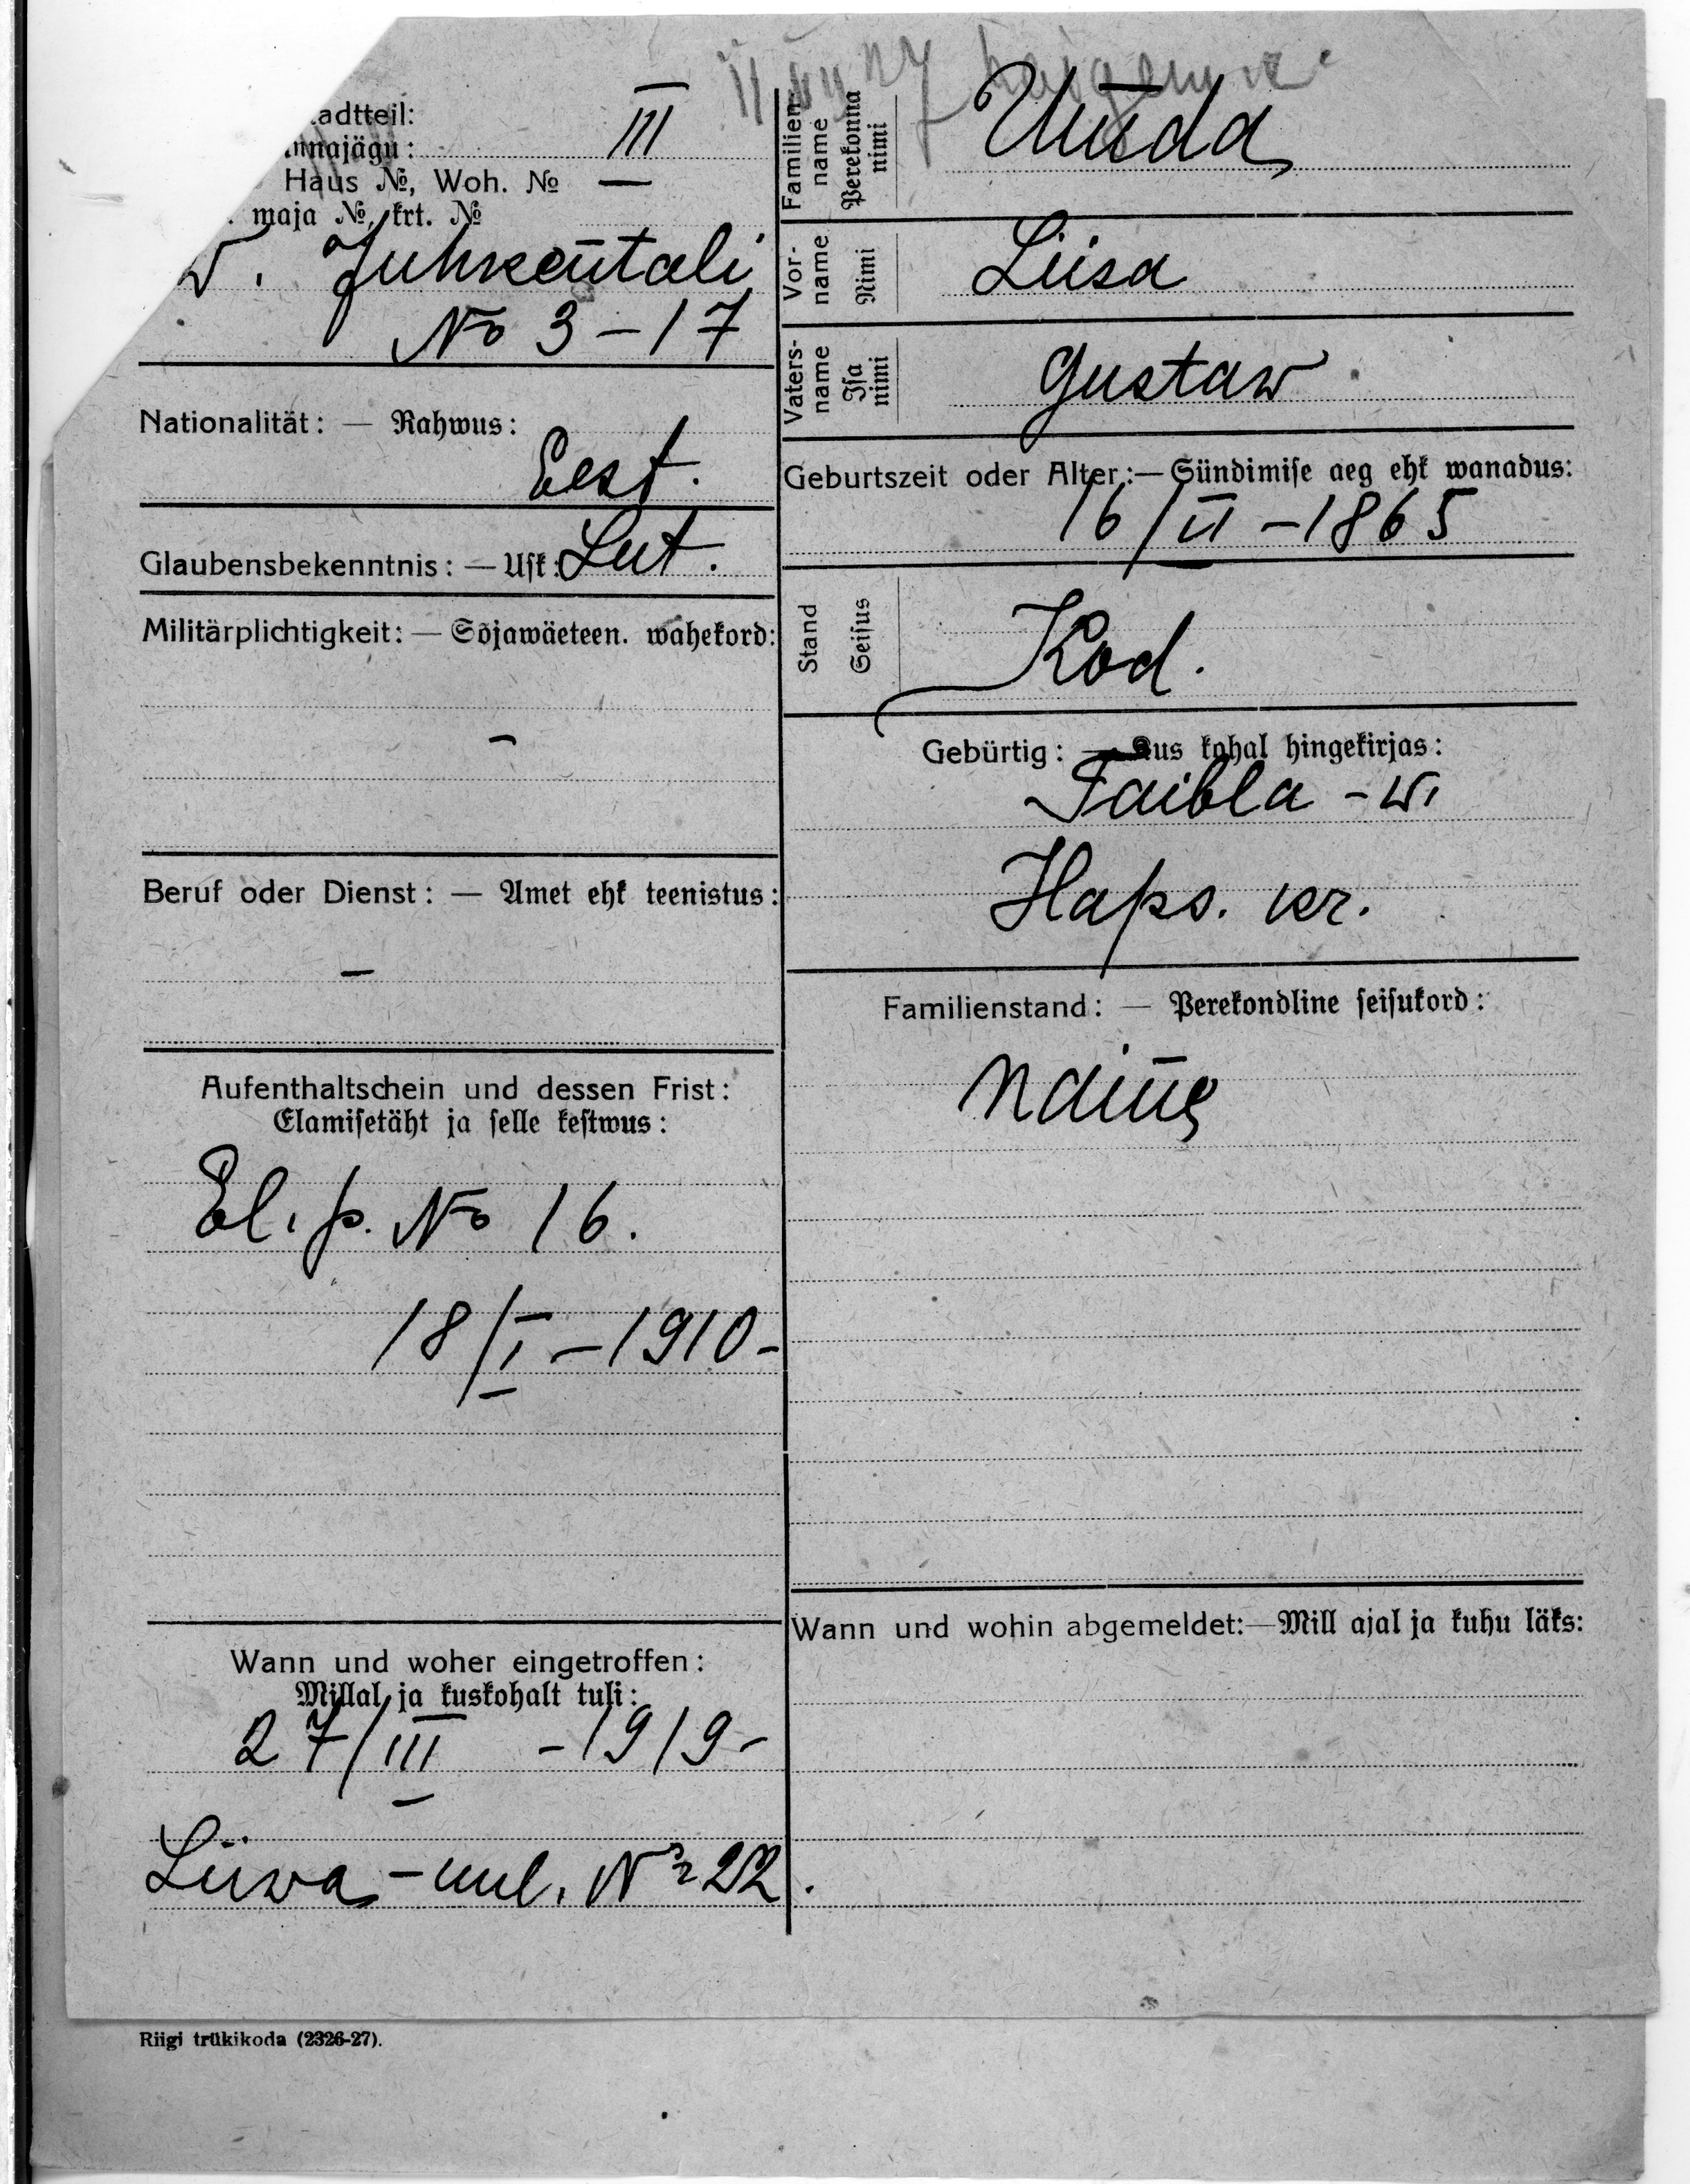 adtteil:
nnajägu: III
Haus №, Woh. № —
maja №, krt. №
w. Juhkentali
No 3 – 17
Nationalität: — Rahwus:
Eest.
Glaubensbekenntnis: — Usk: Lut.
Militärplichtigkeit: — Sõjawäeteen. wahekord:
–
Beruf oder Dienst: — Amet ehk teenistus:
–
Aufenthaltschein und dessen Frist:
Elamisetäht ja selle kestwus:
El. p. No 16.
18/I – 1910 –
Wann und woher eingetroffen:
Millal ja kuskohalt tuli:
27/III – 1919 –
Liiwa – uul. Nr 22.
Familien-
name
Perekonna
nimi
Unda
Vor-
name
Nimi
Liisa
Vaters-
name
Isa
nimi
Gustaw
Geburtszeit oder Alter: — Sündimise aeg ehk wanadus:
16/II – 1865
Stand
Seisus
Kod.
Gebürtig: — Kus kohal hingekirjas:
Taibla – w.
Haps. kr.
Familienstand: — Perekondline seisukord:
Naine
Wann und wohin abgemeldet: — Mill ajal ja kuhu läks:
Riigi trükikoda (2326-27).